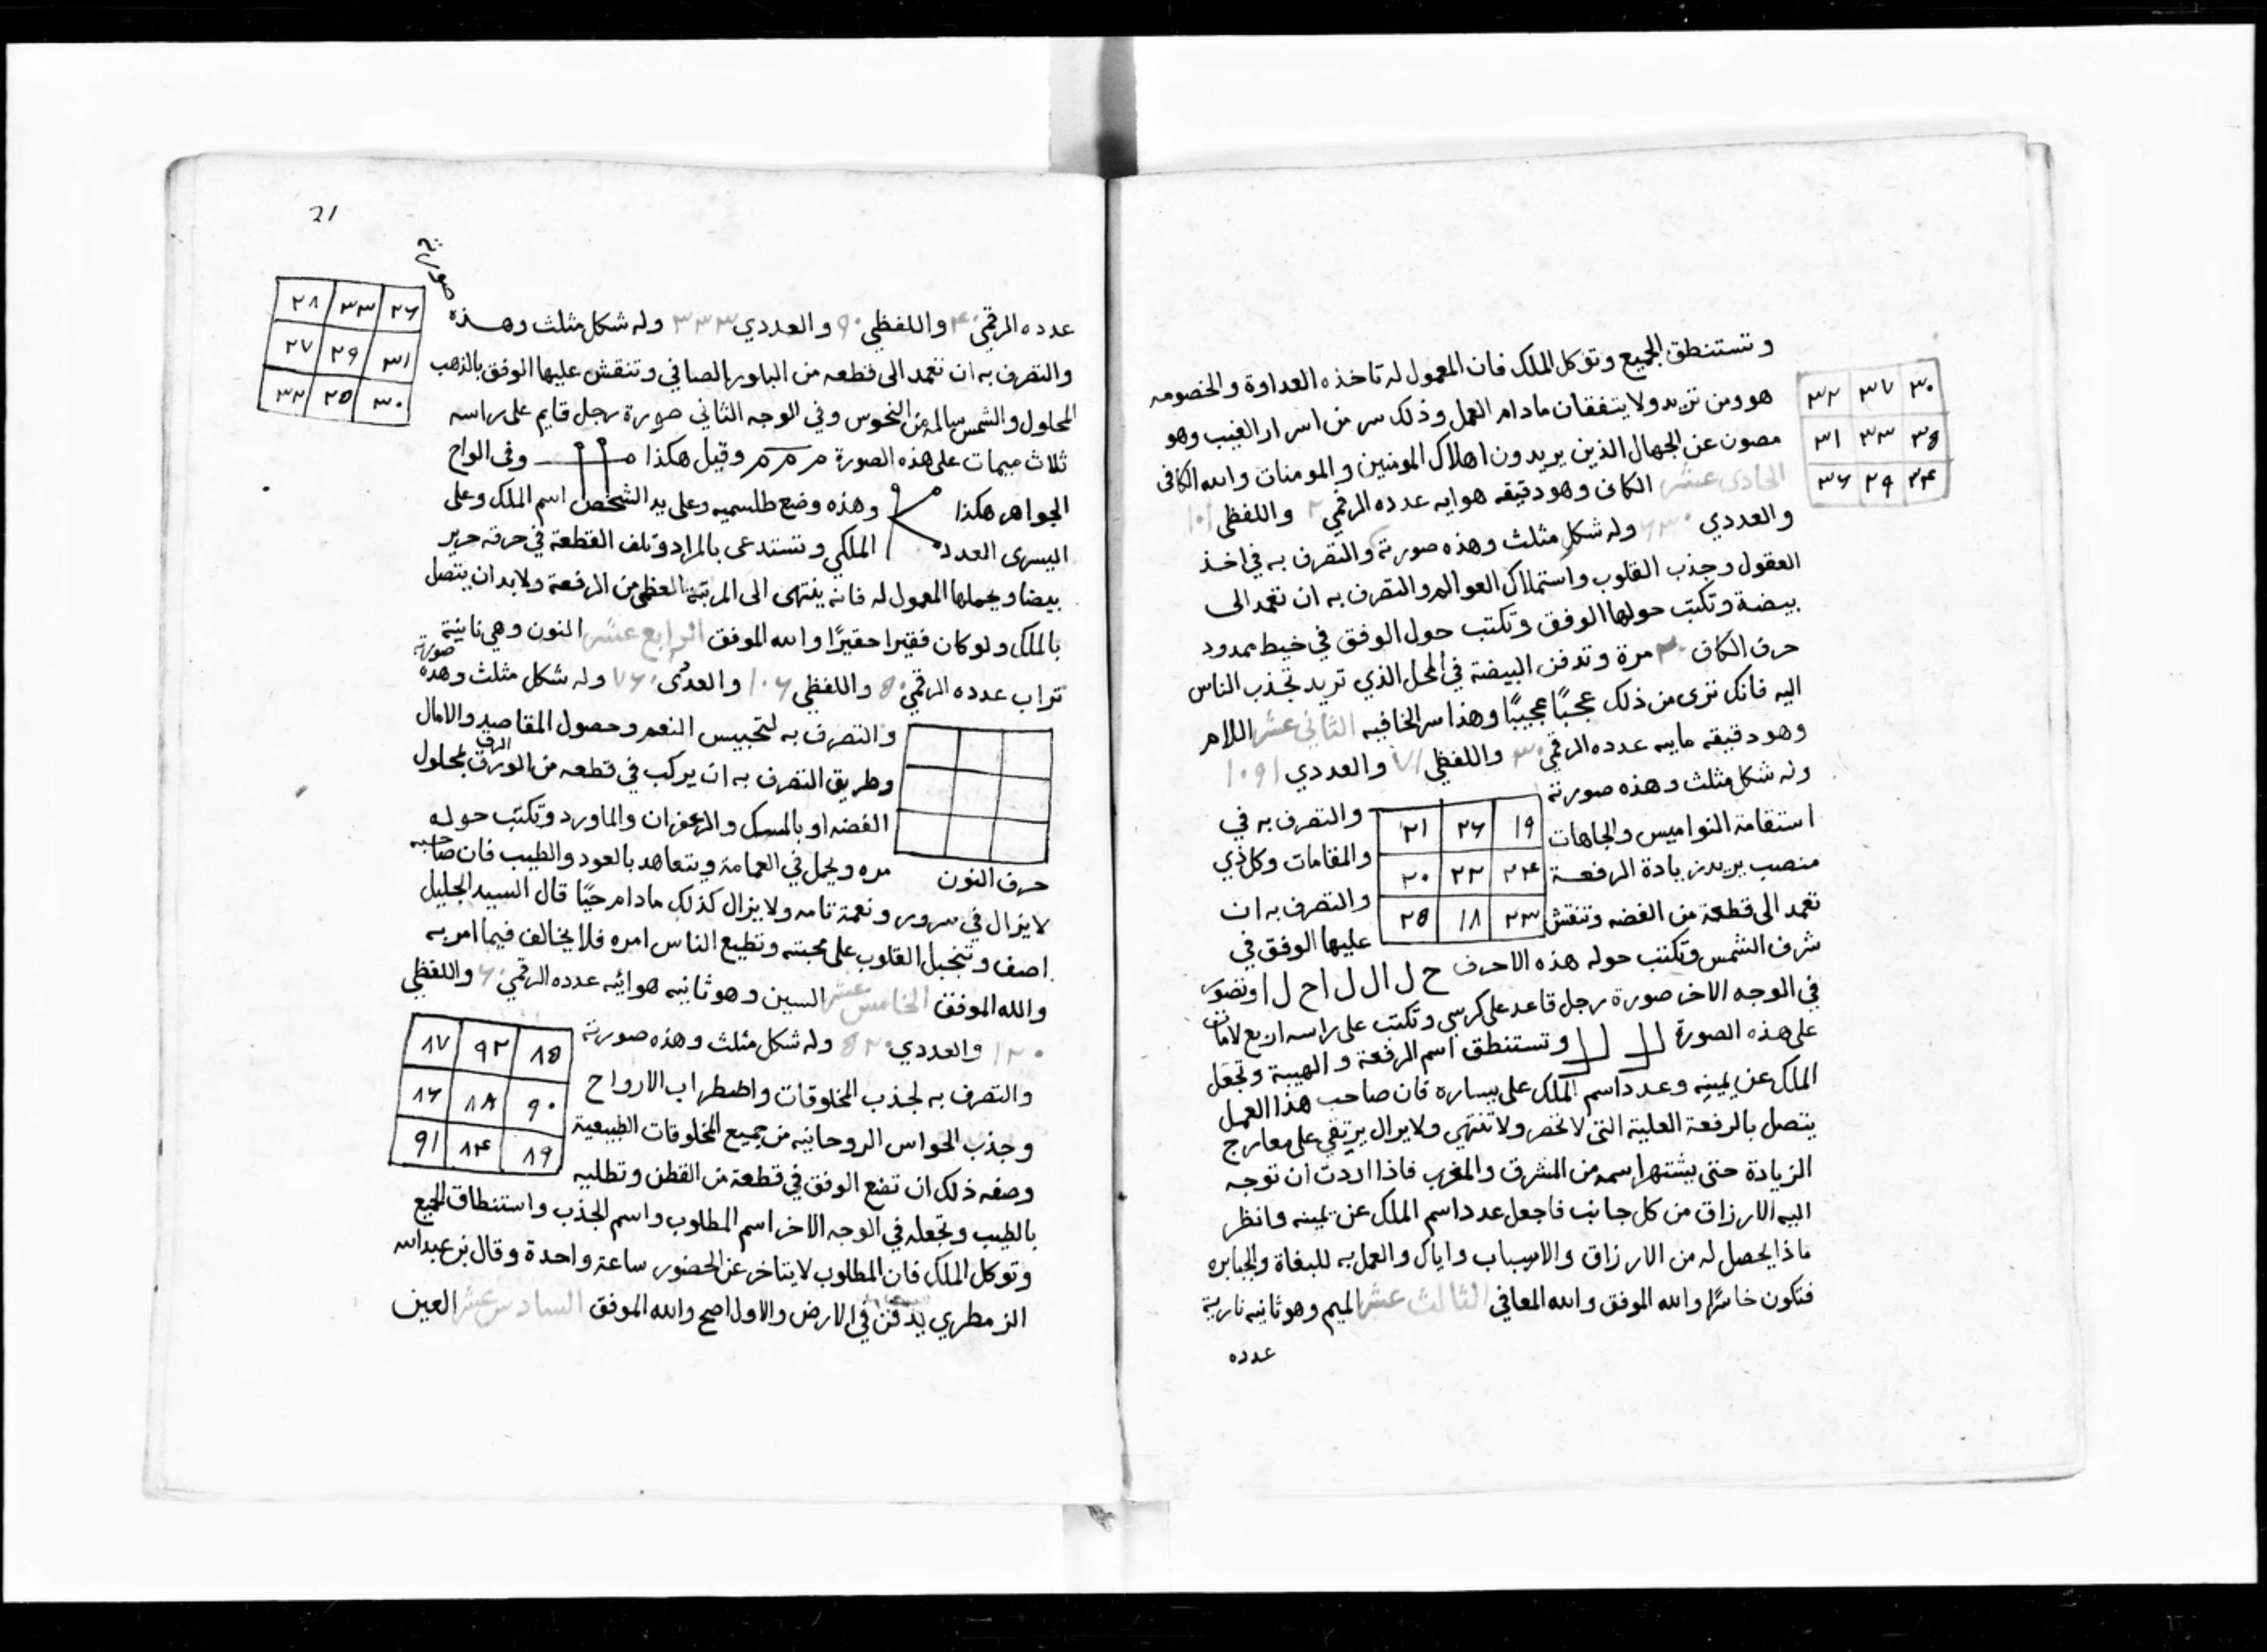 وتستنطق الجميع وتوكل الملك فان المعمول له تاخذه العداوة والخصومه
هو ومن تريد ولا يتفقان مادام العمل وذلك سر من اسرار الغيب وهو
مصون عن الجهال الذين يريدون اهلاك المومنين والمومنات والله الكافى
الحادى عشر الكاف وهو دقيقه هوايه عدده الرقمي ٢٠ واللفظى ١٠١
والعددي ٦٣٠ وله شكل مثلث وهذه صورته والتصرف به في اخذ
العقول وجذب القلوب واستملاك العوالم والتصرف به ان تعمد الى
بيضة وتكتب حولها الوفق وتكتب حول الوفق في خيط ممدود
حرف الكاف ٢٠ مرة وتدفن البيضة في المحل الذي تريد تجذب الناس
اليه فانك ترى من ذلك عجبًا عجيبًا وهذا سر الخافيه الثاني عشر اللام
وهو دقيقه مايه عدده الرقمي ٣٠ واللفظي ٧١ والعددي ١٠٩١
وله شكل مثلث وهذه صورته
٣٠ ٣٧ ٣٢
٣٥ ٣٣ ٣١
٣٤ ٢٩ ٣٦
والتصرف به في
استقامة النواميس والجاهات
والمقامات وكل ذي
منصب يريد زيادة الرفعة
والتصرف به ان
تعمد الى قطعة من الفضه وتنقش
عليها الوفق في
١٩ ٢٦ ٢١
٢٤ ٢٢ ٢٠
٢٣ ١٨ ٢٥
شرف الشمس وتكتب حوله هذه الاحرف ح ل ا ل ل ا ح ل ا وتصور
في الوجه الاخر صورة رجل قاعد على كرسي وتكتب على راسه اربع لامات
على هذه الصورة وتستنطق اسم الرفعة والهيبة وتجعل
الملك عن يمينه وعدد اسم الملك على يساره فان صاحب هذا العمل
يتصل بالرفعة العلية التى لا تحصر ولا تنتهي ولا يزال يرتقي على معارج
الزيادة حتى يشتهر اسمه من المشرق والمغرب فاذا اردت ان توجه
اليه الارزاق من كل جانب فاجعل عدد اسم الملك عن يمينه وانظر
ماذا يحصل له من الارزاق والاسباب واياك والعمل به للبغاة والجبابره
فتكون خاسرًا والله الموفق والله المعافي الثالث عشر الميم وهو ثانيه نارية
عدده
21
عدده الرقمي ٤٠ واللفظي ٩٠ والعددي ٣٣٣ وله شكل مثلث وهذه صورته
٢٦ ٣٣ ٢٨
٣١ ٢٩ ٢٧
٣٠ ٢٥ ٣٢
والتصرف به ان تعمد الى قطعه من البلور الصافي وتنقش عليها الوفق بالذهب
المحلول والشمس سالمة من النحوس وفي الوجه الثاني صورة رجل قايم على راسه
ثلاث ميمات على هذه الصورة م م م وقيل هكذا وفى الواح
الجواهر هكذا وهذه وضع طلسميه وعلى يد الشخص اسم الملك وعلى
اليسرى العدد الملكي وتستدعى بالمراد وتلف القطعة في خرقه حرير
بيضا ويحملها المعمول له فانه ينتهى الى المرتبة العظمى من الرفعة ولابد ان يتصل
بالملك ولو كان فقيرا حقيرًا والله الموفق الرابع عشر النون وهي ثانية
تراب عدده الرقمي ٥٠ واللفظي ١٠٦ والعددى ٧٦٠ وله شكل مثلث وهذه صورته
والتصرف به لتحبيس النعم وحصول المقاصد والامال
وطريق التصرف به ان يركب في قطعه من الورق الرق بمحلول
الفضه او بالمسك والزعفران والماورد وتكتب حوله
حرف النون مره ويحمل في العمامة ويتعاهد بالعود والطيب فان صاحبه
لا يزال في سرور ونعمة تامه ولا يزال كذلك مادام حيًا قال السيد الجليل
اصف وتنجبل القلوب على محبته وتطيع الناس امره فلا يخالف فيما امر به
والله الموفق الخامس عشر السين وهو ثانيه هوائيه عدده الرقمي ٦٠ واللفظي
١٢٠ والعددي ٥٢٠ وله شكل مثلث وهذه صورته
٨٥ ٩٢ ٨٧
٩٠ ٨٨ ٨٦
٨٩ ٨٤ ٩١
والتصرف به لجذب المخلوقات واضطراب الارواح
وجذب الحواس الروحانيه من جميع المخلوقات الطبيعية
وصفه ذلك ان تضع الوفق في قطعة من القطن وتطليه
بالطيب وتجعله في الوجه الاخر اسم المطلوب واسم الجذب واستنطاق الجميع
وتوكل الملك فان المطلوب لا يتاخر عن الحضور ساعة واحدة وقال بن عبدالله
الزمطري يدفن في الارض والاول اصح والله الموفق السادس عشر العين